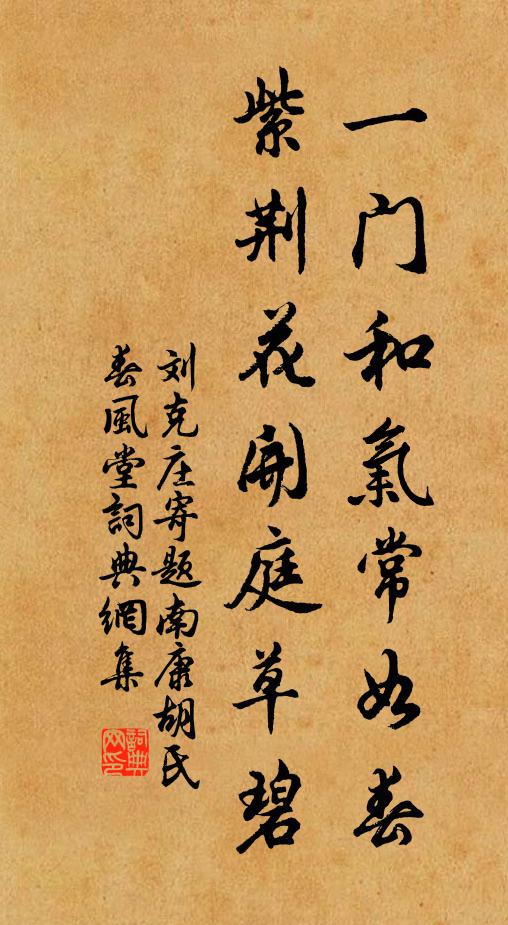 一門和氣常如春
紫荆花開庭草碧
刘克庄寄题南康胡氏
春風堂詞典網集
詞典網印